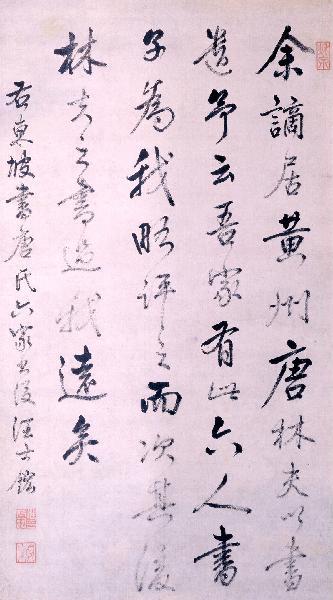 余謫居黄州唐林夫以書
遺予云吾家有此六人書
子為我略評之而次其後
林夫之書過我遠矣
右東坡書唐氏六家書後汪士鋐